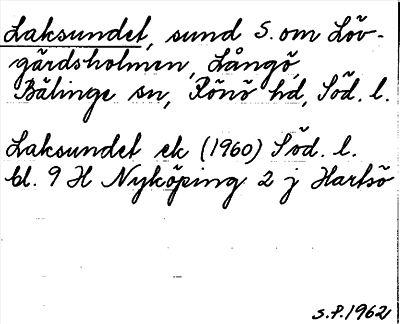 Laksundet, sund S. om Löv-
gärdsholmen, Långö,
Bälinge sn, Rönö hd, Söd. l.
Laksundet ek (1960) Söd. l.
bl. 9 H Nyköping 2 j Hartsö
S.P. 1962